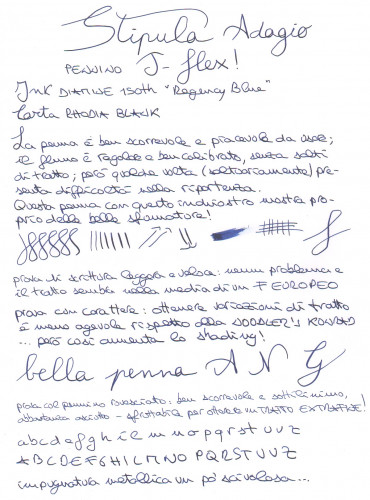 Stipula Adagio
PENNINO T-flex!
INK DIAMINE 150th "Regency Blue"
Carta RHODIA BLANK
La penna è ben scorrevole e piacevole da usare;
il flusso è regolare e ben calibrato, senza salti
di tratto; però qualche volta (saltuariamente) pre-
senta difficoltà nella ripartenza.
Questa penna con questo inchiostro mostra pro-
prio delle belle sfumature!
prova di scrittura leggera e veloce: nessun problema e
il tratto sembra nella media di un F EUROPEO
prova con carattere: ottenere variazioni di tratto
è meno agevole rispetto alla DOODLER'S KONRAD
... però così aumenta lo shading!
bella penna A N G
prova col pennino rovesciato: ben scorrevole e sottilissimo,
abbastanza asciutto - sfruttabile per ottenere un TRATTO EXTRAFINE!
abcdefgh il m no pqrst uvz
ABCDEFGHILMNO PQRSTUVZ
impugnatura metallica un po' scivolosa...